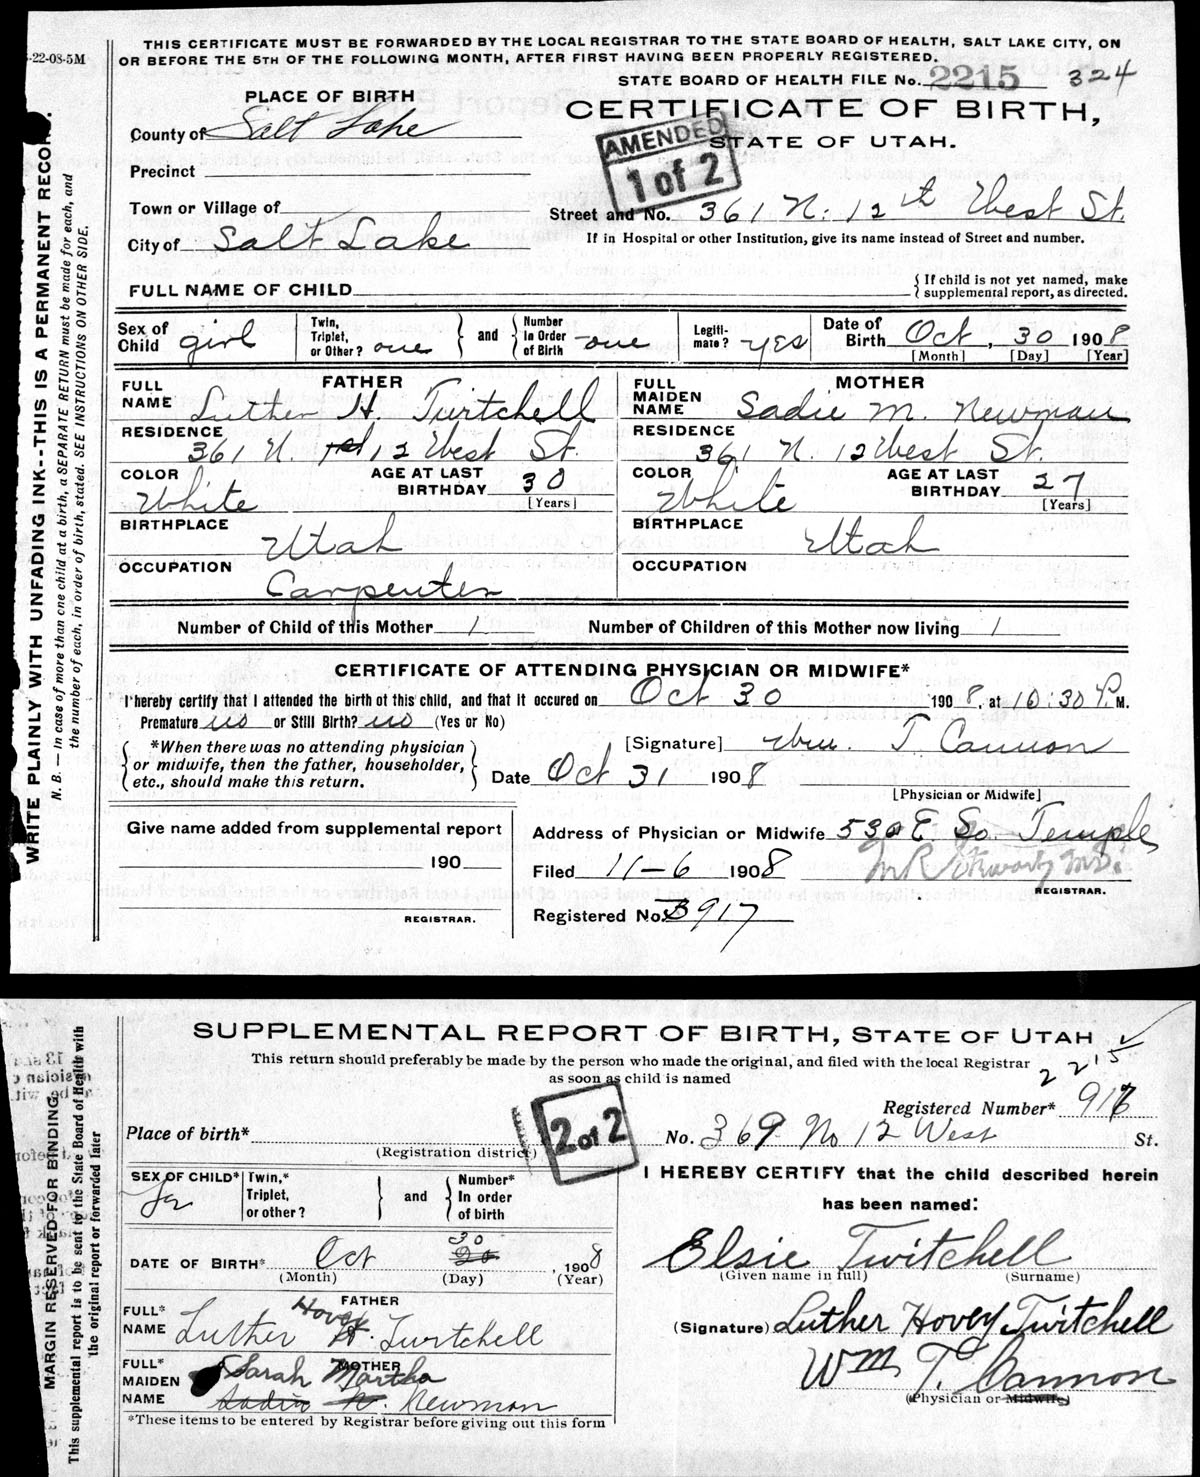 -22-08-5M
THIS CERTIFICATE MUST BE FORWARDED BY THE LOCAL REGISTRAR TO THE STATE BOARD OF HEALTH, SALT LAKE CITY, ON
OR BEFORE THE 5TH OF THE FOLLOWING MONTH, AFTER FIRST HAVING BEEN PROPERLY REGISTERED.
STATE BOARD OF HEALTH FILE No. 2215 324
PLACE OF BIRTH
CERTIFICATE OF BIRTH,
STATE OF UTAH.
AMENDED
1 of 2
County of Salt Lake
Precinct
Town or Village of
Street and No. 361 N. 12th West St.
City of Salt Lake
If in Hospital or other Institution, give its name instead of Street and number.
FULL NAME OF CHILD
{If child is not yet named, make
supplemental report, as directed.
Sex of Child girl
Twin, Triplet, or Other? one } and { Number In Order of Birth one
Legiti- mate? yes
Date of Birth Oct, 30 1908
[Month] [Day] [Year]
FATHER
FULL NAME Luther H. Twitchell
MOTHER
FULL MAIDEN NAME Sadie M. Newman
RESIDENCE 361 N. 12 West St.
RESIDENCE 361 N. 12 West St.
COLOR White
AGE AT LAST BIRTHDAY 30
[Years]
COLOR White
AGE AT LAST BIRTHDAY 27
[Years]
BIRTHPLACE Utah
BIRTHPLACE Utah
OCCUPATION Carpenter
OCCUPATION
Number of Child of this Mother 1 Number of Children of this Mother now living 1
CERTIFICATE OF ATTENDING PHYSICIAN OR MIDWIFE*
I hereby certify that I attended the birth of this child, and that it occured on Oct 30 1908, at 10:30 P.M.
Premature no or Still Birth? no (Yes or No)
{*When there was no attending physician
or midwife, then the father, householder,
etc., should make this return.}
[Signature] Wm. T Cannon
Date Oct 31 1908
[Physician or Midwife]
Give name added from supplemental report
190
REGISTRAR.
Address of Physician or Midwife 530 E So. Temple
Filed 11-6 1908
REGISTRAR.
Registered No. 3917
WRITE PLAINLY WITH UNFADING INK--THIS IS A PERMANENT RECORD.
N. B. — In case of more than one child at a birth, a SEPARATE RETURN must be made for each, and
the number of each, in order of birth, stated. SEE INSTRUCTIONS ON OTHER SIDE.
SUPPLEMENTAL REPORT OF BIRTH, STATE OF UTAH
This return should preferably be made by the person who made the original, and filed with the local Registrar
as soon as child is named
2215
Registered Number* 917
2 of 2
Place of birth*
(Registration district)
No. 369 No 12 West St.
SEX OF CHILD*
Twin,* Triplet, or other? } and { Number* In order of birth
I HEREBY CERTIFY that the child described herein
has been named:
DATE OF BIRTH* Oct 30 20, 1908
(Month) (Day) (Year)
Elsie Twitchell
(Given name in full) (Surname)
FATHER
FULL* NAME Luther Hovey H. Twitchell
(Signature) Luther Hovey Twitchell
MOTHER
FULL* MAIDEN NAME Sarah Martha Sadie M. Newman
Wm T. Cannon
(Physician or Midwife)
*These items to be entered by Registrar before giving out this form
MARGIN RESERVED FOR BINDING
This supplemental report is to be sent to the State Board of Health with
the original report or forwarded later